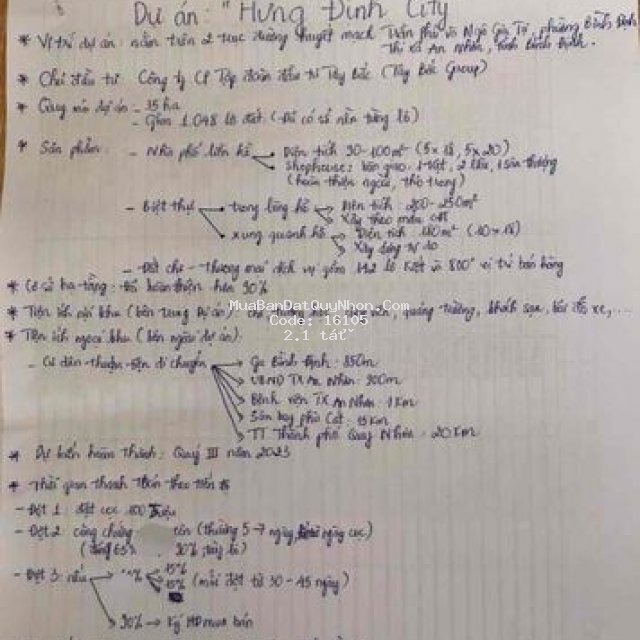 Dự án: "Hưng Định City
* Vị trí dự án: nằm trên 2 trục đường huyết mạch Trần Phú và Ngô Gia Tự, phường Bình Định
Thị xã An Nhơn, tỉnh Bình Định.
* Chủ đầu tư: Công ty CP Tập đoàn đầu tư Tây Bắc (Tây Bắc Group)
* Quy mô dự án - 35 ha
- Gồm 1.048 lô đất (Đã có sổ nền từng lô)
* Sản phẩm: - Nhà phố liền kề Diện tích 90-100m² (5x18, 5x20)
Shophouse: bàn giao 1 trệt, 2 lầu, 1 sân thượng
(hoàn thiện ngoài, thô trong)
- biệt thự trong lòng hồ Diện tích: 200-250m²
Xây theo mẫu CĐT
xung quanh hồ Diện tích: 180m² (10x18)
Xây dựng tự do
- Đất chợ - Thương mại dịch vụ gồm lô Kiot và 800 vị trí bán hàng
* Cơ sở hạ tầng: đã hoàn thiện hơn 90%
* Tiện ích nội khu (bên trong Dự án) quảng trường, khách sạn, bãi đỗ xe,...
MuaBanDatQuyNhon.Com
Code: 16105
2.1 tất~
* Tiện ích ngoại khu (bên ngoài dự án).
- Cư dân thuận tiện di chuyển Ga Bình Định: 850m
UBND TX An Nhơn: 900m
Bệnh viện TX An Nhơn: 1Km
Sân bay phù Cát: 15Km
TT Thành phố Quy Nhơn: 20Km
* Dự kiến hoàn thành: Quý III năm 2023
* Thời gian thanh toán theo tiến độ
- Đợt 1: đặt cọc 100 triệu
- Đợt 2: công chứng (thường 5-7 ngày ngày cọc)
30%
- Đợt 3: nếu 15%
15% (mỗi đợt từ 30-45 ngày)
30% → Ký HĐ mua bán